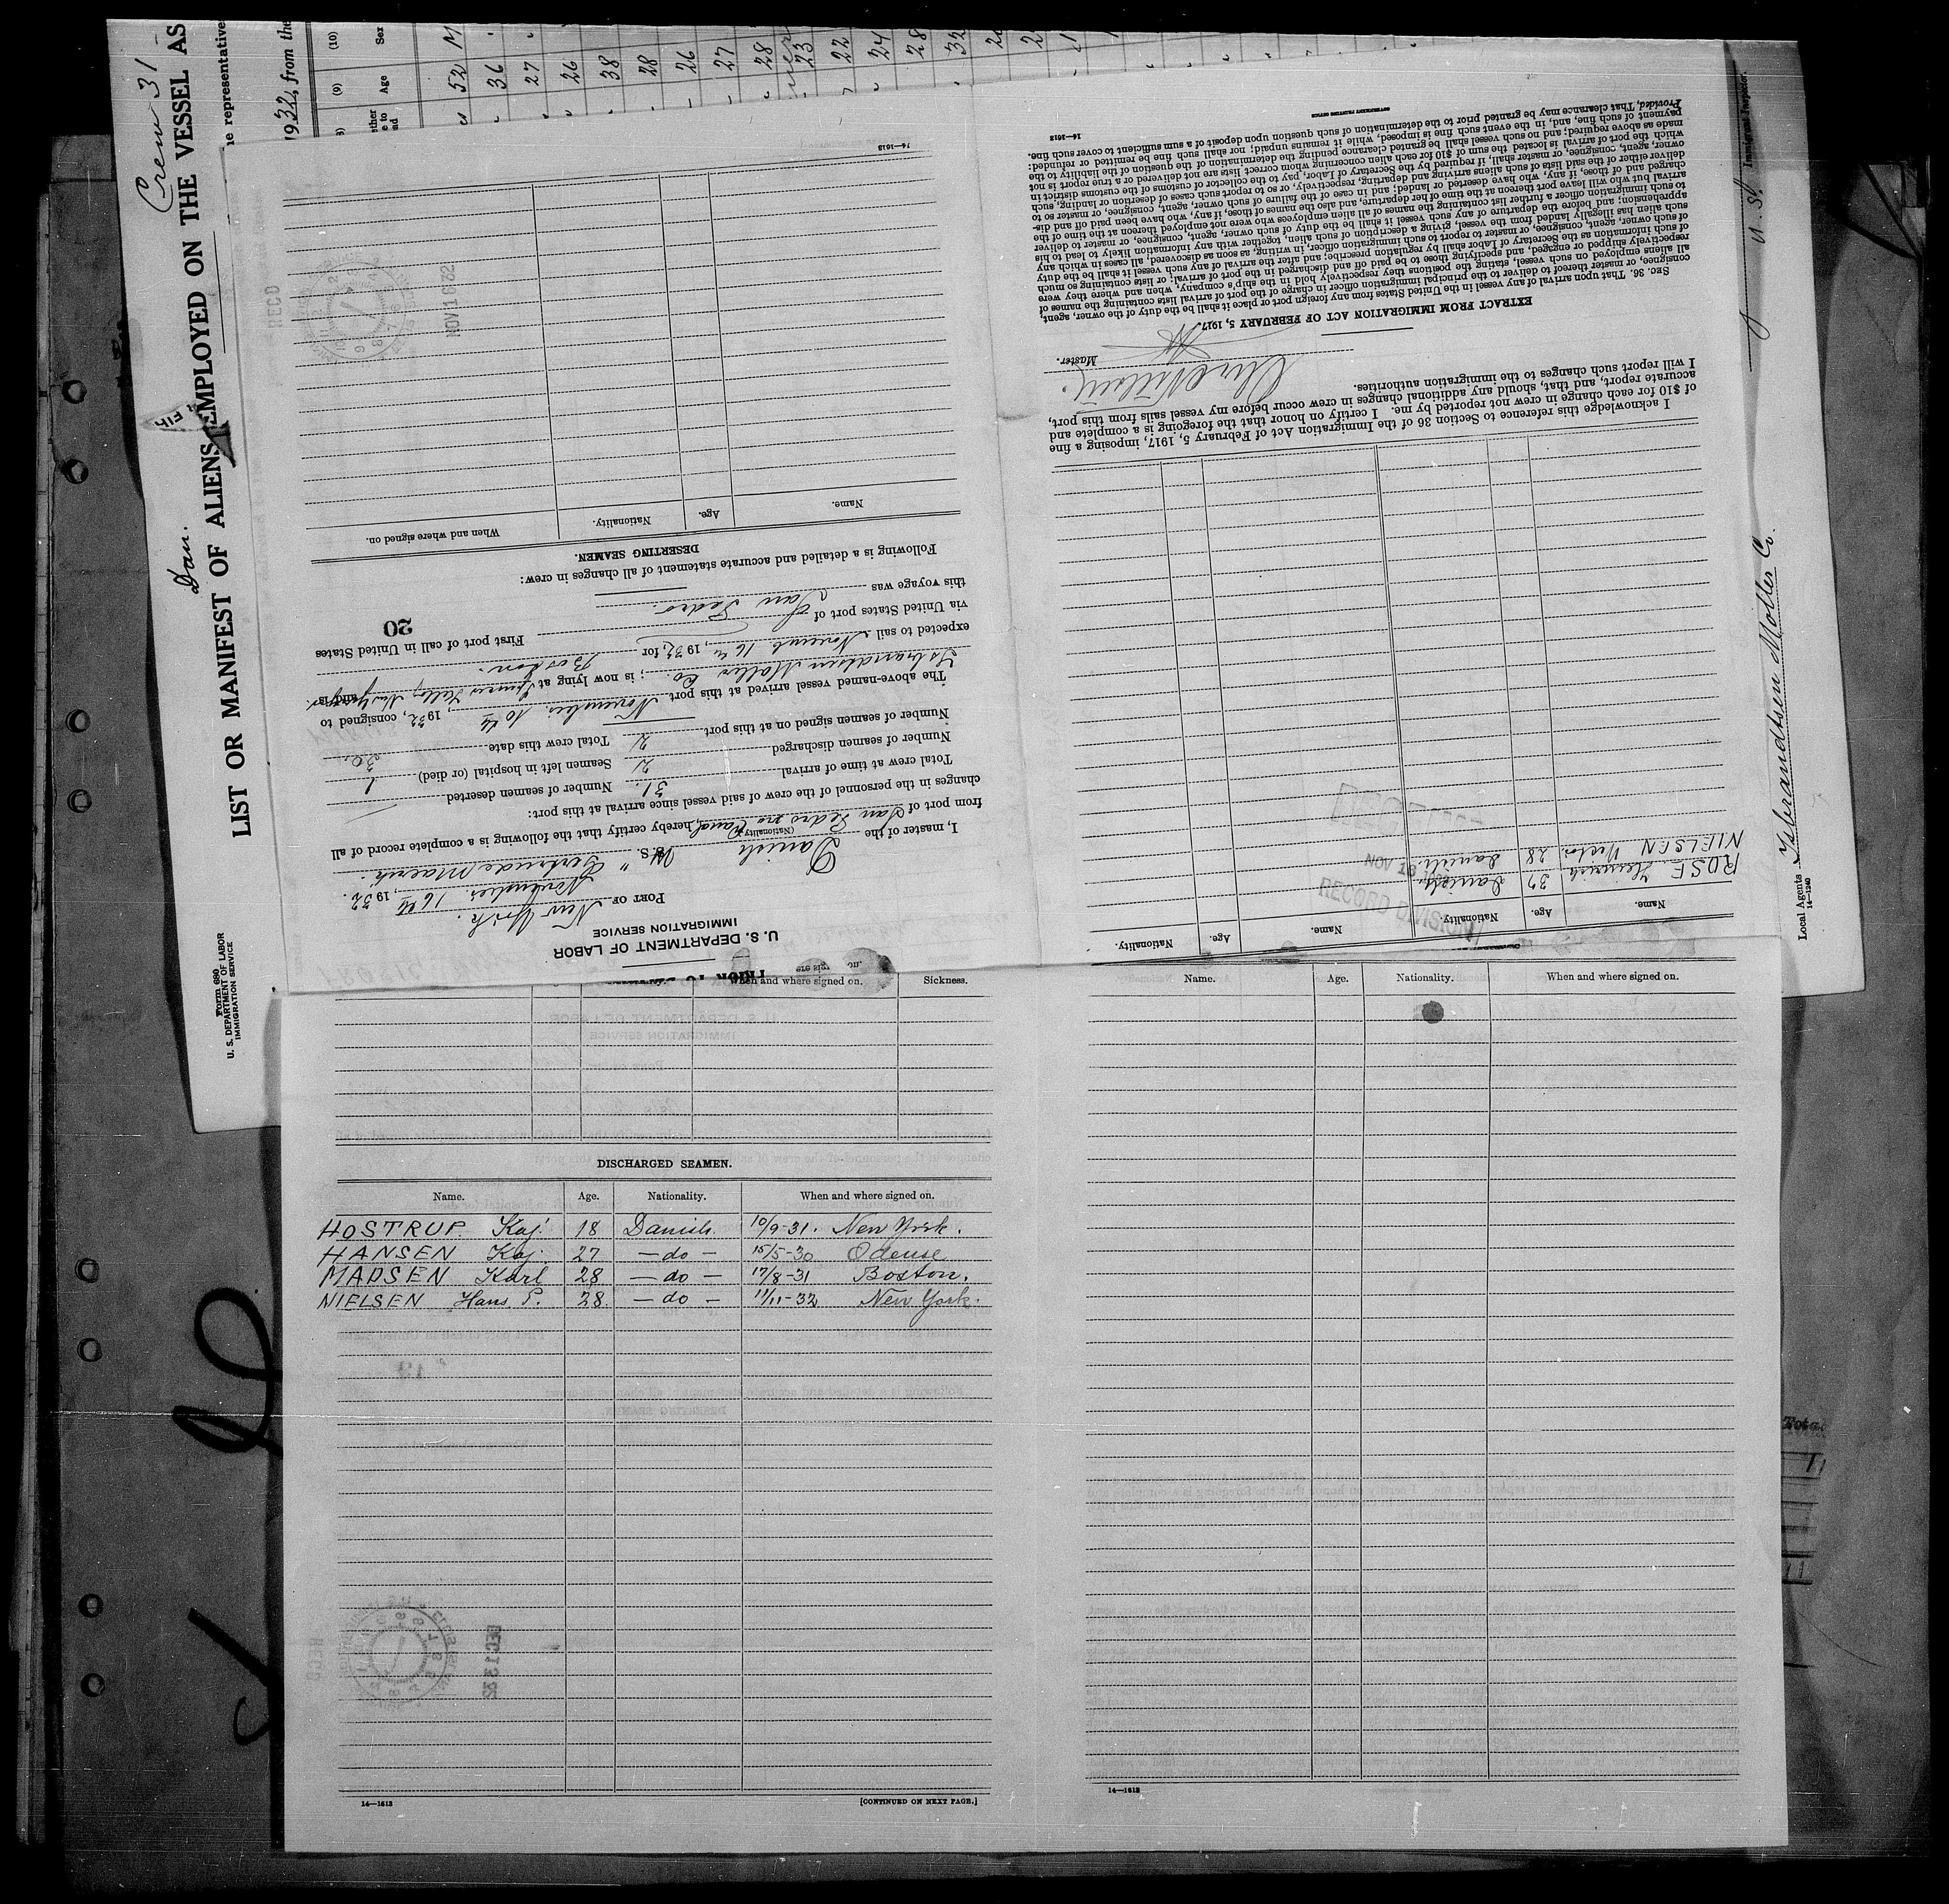 Crew 31 -
Dan.
LIST OR MANIFEST OF ALIENS EMPLOYED ON THE VESSEL AS
Form 680
U. S. DEPARTMENT OF LABOR
IMMIGRATION SERVICE
representative
1932, from the
(9) (10)
Age Sex
52 M
36
27
26
38
28
26
27
28
23
22
24
28
32
Immigrant Inspector.
Local Agents Isbrandtsen Moller Co.
14—1240
U. S. DEPARTMENT OF LABOR
IMMIGRATION SERVICE
PORT OF New York.
November 16th, 1932.
I, master of the Danish M.S. "Gertrude Maersk"
(Nationality)
from port of San Pedro via Canal, hereby certify that the following is a complete record of all
changes in the personnel of the crew of said vessel since arrival at this port:
Total crew at time of arrival 31. Number of seamen deserted
Number of seamen discharged 2 Seamen left in hospital (or died) 1
Number of seamen signed on at this port 2 Total crew this date 30.
The above-named vessel arrived at this port November 10th, 1932, consigned to
Isbrandtsen Moller Co.; is now lying at
expected to sail November 16th, 1932, for Boston.
via United States port of First port of call in United States
this voyage was San Pedro.
20
Following is a detailed and accurate statement of all changes in crew:
DESERTING SEAMEN.
Name. Age. Nationality. When and where signed on.
REC'D
NOV 1
14—1613
Name. Age. Nationality. Name. Age. Nationality.
ROSE Heinrich 32 Danish
NIELSEN Victor 28 Danish.
RECORD DIVISION
NOV 16
I acknowledge this reference to Section 36 of the Immigration Act of February 5, 1917, imposing a fine
of $10 for each change in crew not reported by me. I certify on honor that the foregoing is a complete and
accurate report, and that, should any additional changes in crew occur before my vessel sails from this port,
I will report such changes to the immigration authorities.
Master.
EXTRACT FROM IMMIGRATION ACT OF FEBRUARY 5, 1917.
SEC. 36. That upon arrival of any vessel in the United States from any foreign port or place it shall be the duty of the owner, agent,
consignee, or master thereof to deliver to the principal immigration officer in charge of the port of arrival lists containing the names of
all aliens employed on such vessel, stating the positions they respectively hold in the ship's company, when and where they were
respectively shipped or engaged, and specifying those to be paid off and discharged in the port of arrival; or lists containing so much
of such information as the Secretary of Labor shall by regulation prescribe; and after the arrival of any such vessel it shall be the duty
of such owner, agent, consignee, or master to report to such immigration officer, in writing, as soon as discovered, all cases in which any
such alien has illegally landed from the vessel, giving a description of such alien, together with any information likely to lead to his
apprehension; and before the departure of any such vessel it shall be the duty of such owner, agent, consignee, or master to deliver
to such immigration officer a further list containing the names of all alien employees who were not employed thereon at the time of the
arrival but who will leave port thereon at the time of her departure, and also the names of those, if any, who have been paid off and dis-
charged and of those, if any, who have deserted or landed; and in case of the failure of such owner, agent, consignee, or master so to
deliver either of the said lists of such aliens arriving and departing, respectively, or so to report such cases of desertion or landing, such
owner, agent, consignee, or master shall, if required by the Secretary of Labor, pay to the collector of customs of the customs district in
which the port of arrival is located the sum of $10 for each alien concerning whom correct lists are not delivered or a true report is not
made as above required; and no such vessel shall be granted clearance pending the determination of the question of the liability to the
payment of such fine, and, in the event such fine is imposed, while it remains unpaid; nor shall such fine be remitted or refunded:
Provided, That clearance may be granted prior to the determination of such question upon deposit of a sum sufficient to cover such fine.
14—1613 GOVERNMENT PRINTING OFFICE
When and where signed on. Sickness.
DISCHARGED SEAMEN.
Name. Age. Nationality. When and where signed on.
HOSTRUP. Kaj. 18 Danish. 10/9-31. New York.
HANSEN Kaj. 27 — do — 15/5-30 Odense
MADSEN Karl 28 — do — 17/8-31 Boston.
NIELSEN Hans P. 28. — do — 11/11-32 New York.
DEC 13 32
14—1613 [CONTINUED ON NEXT PAGE.]
Name. Age. Nationality. When and where signed on.
14—1613
Total